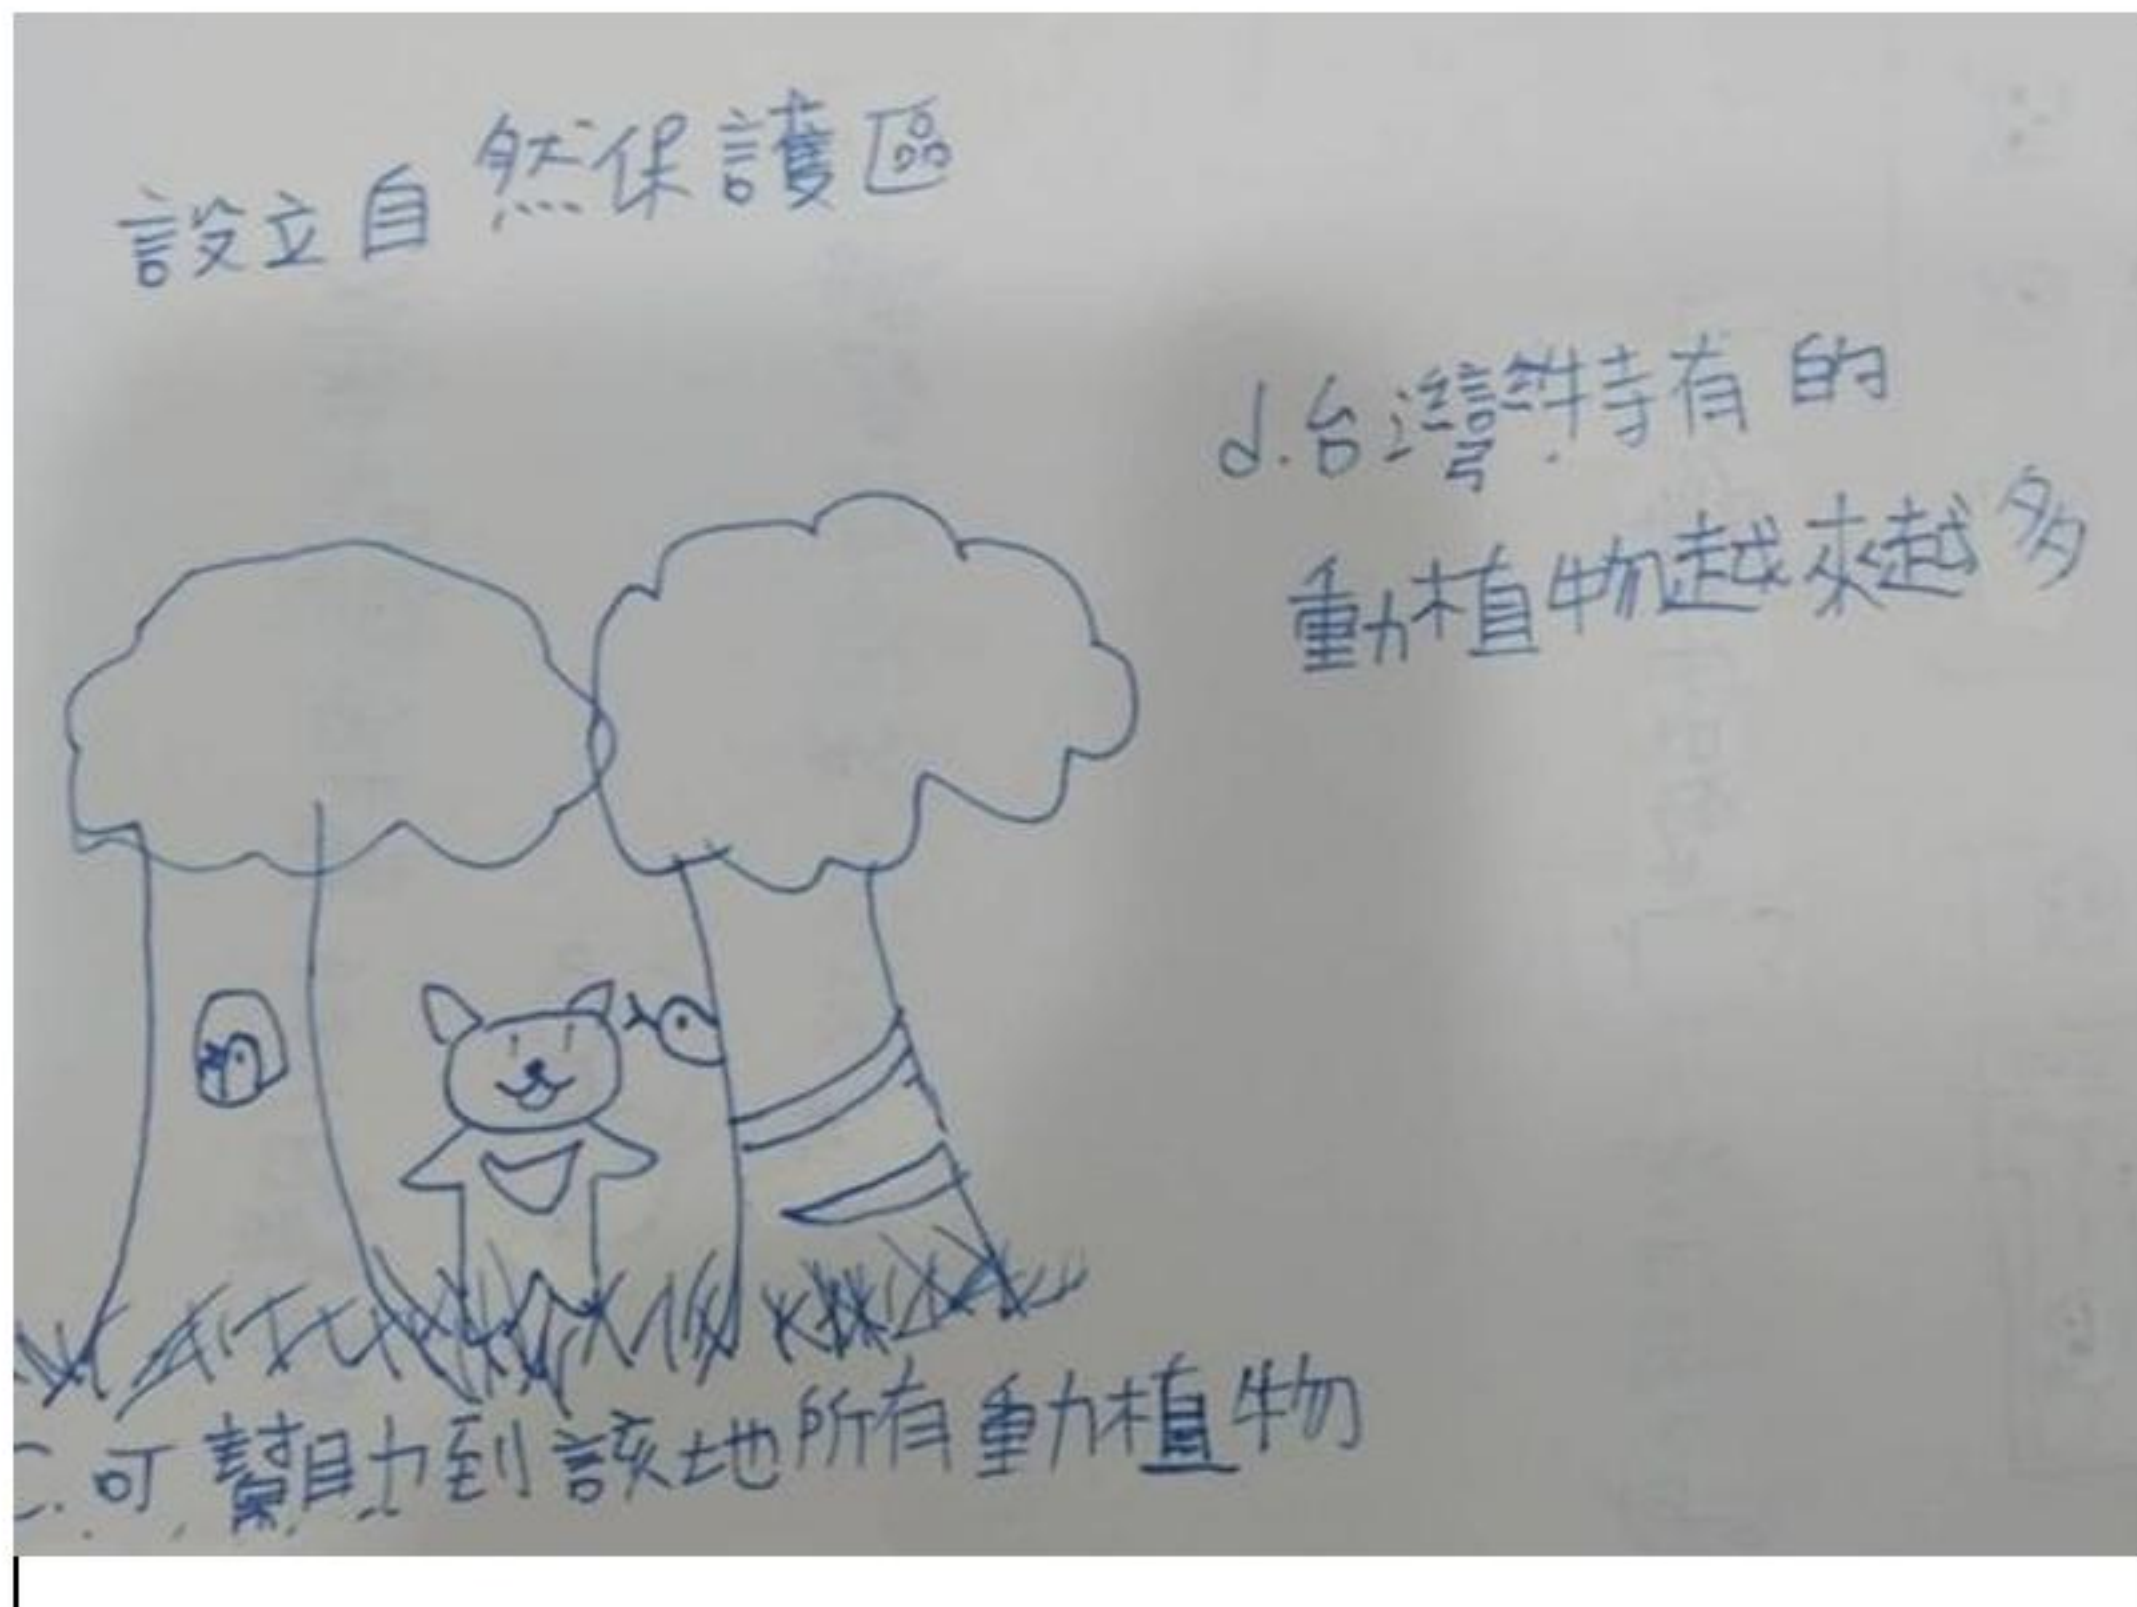 設立自然保護區
d.台灣特有的
動植物越來越多
c.可幫助到該地所有動植物